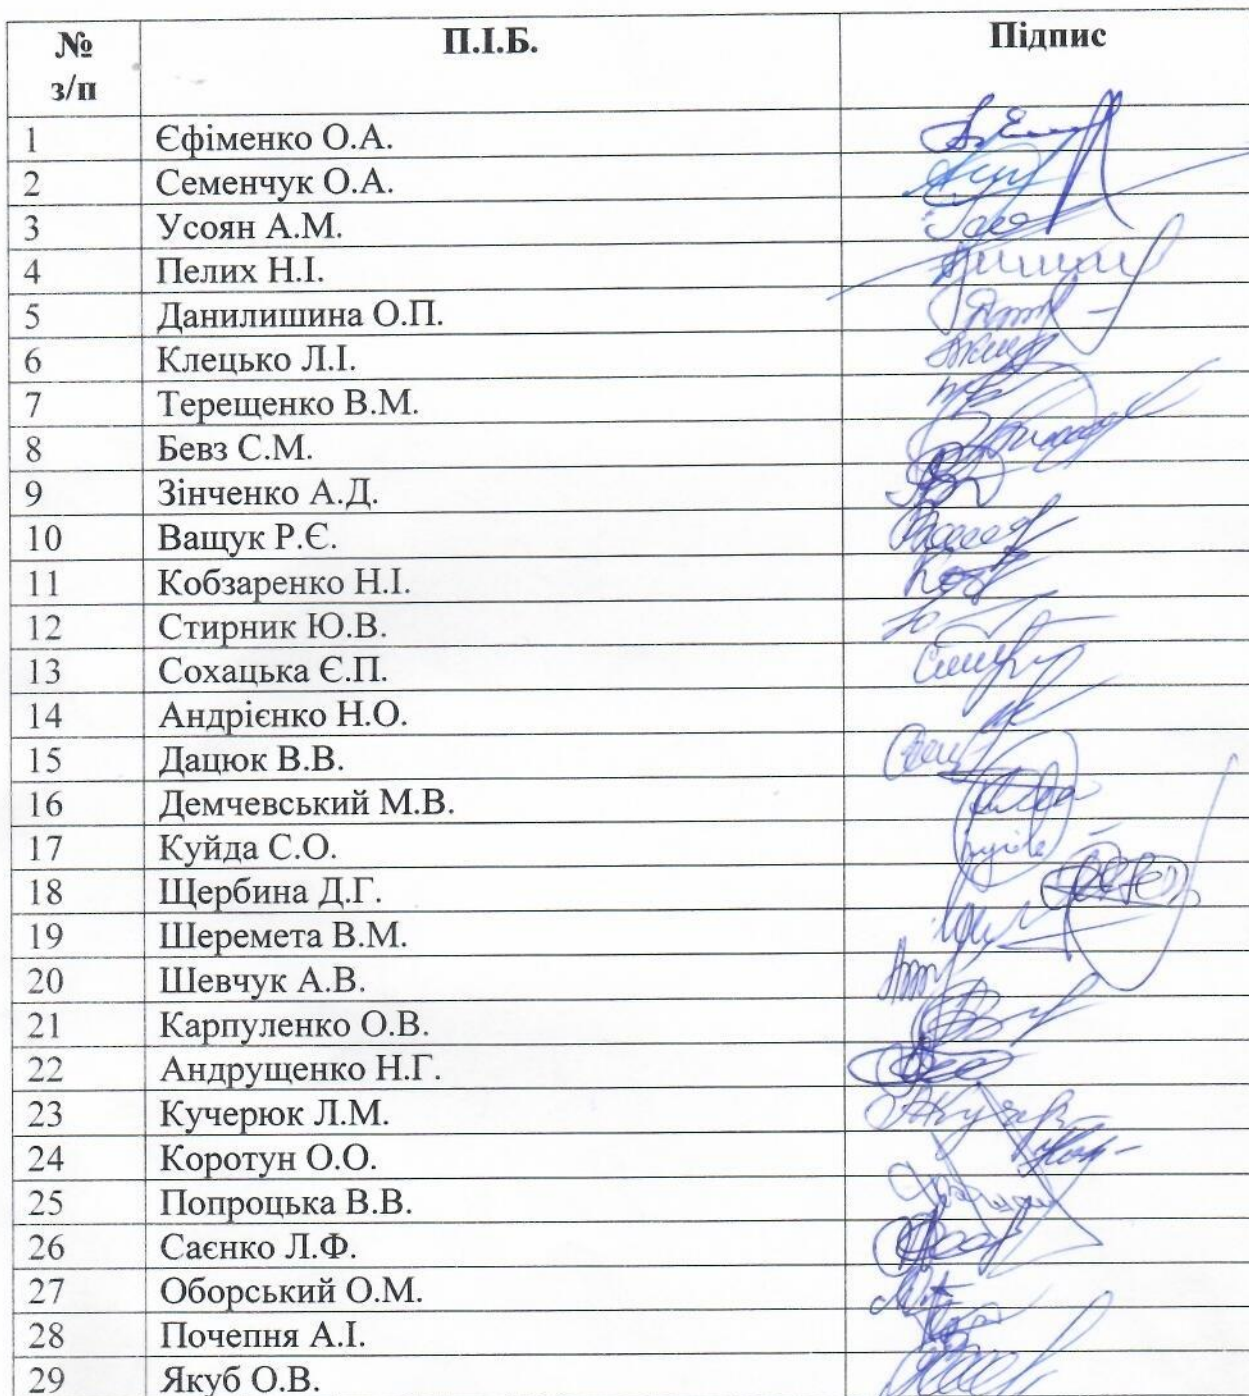 № з/п П.І.Б. Підпис
1 Єфіменко О.А.
2 Семенчук О.А.
3 Усоян А.М.
4 Пелих Н.І.
5 Данилишина О.П.
6 Клецько Л.І.
7 Терещенко В.М.
8 Бевз С.М.
9 Зінченко А.Д.
10 Ващук Р.Є.
11 Кобзаренко Н.І.
12 Стирник Ю.В.
13 Сохацька Є.П.
14 Андрієнко Н.О.
15 Дацюк В.В.
16 Демчевський М.В.
17 Куйда С.О.
18 Щербина Д.Г.
19 Шеремета В.М.
20 Шевчук А.В.
21 Карпуленко О.В.
22 Андрущенко Н.Г.
23 Кучерюк Л.М.
24 Коротун О.О.
25 Попроцька В.В.
26 Саєнко Л.Ф.
27 Оборський О.М.
28 Почепня А.І.
29 Якуб О.В.